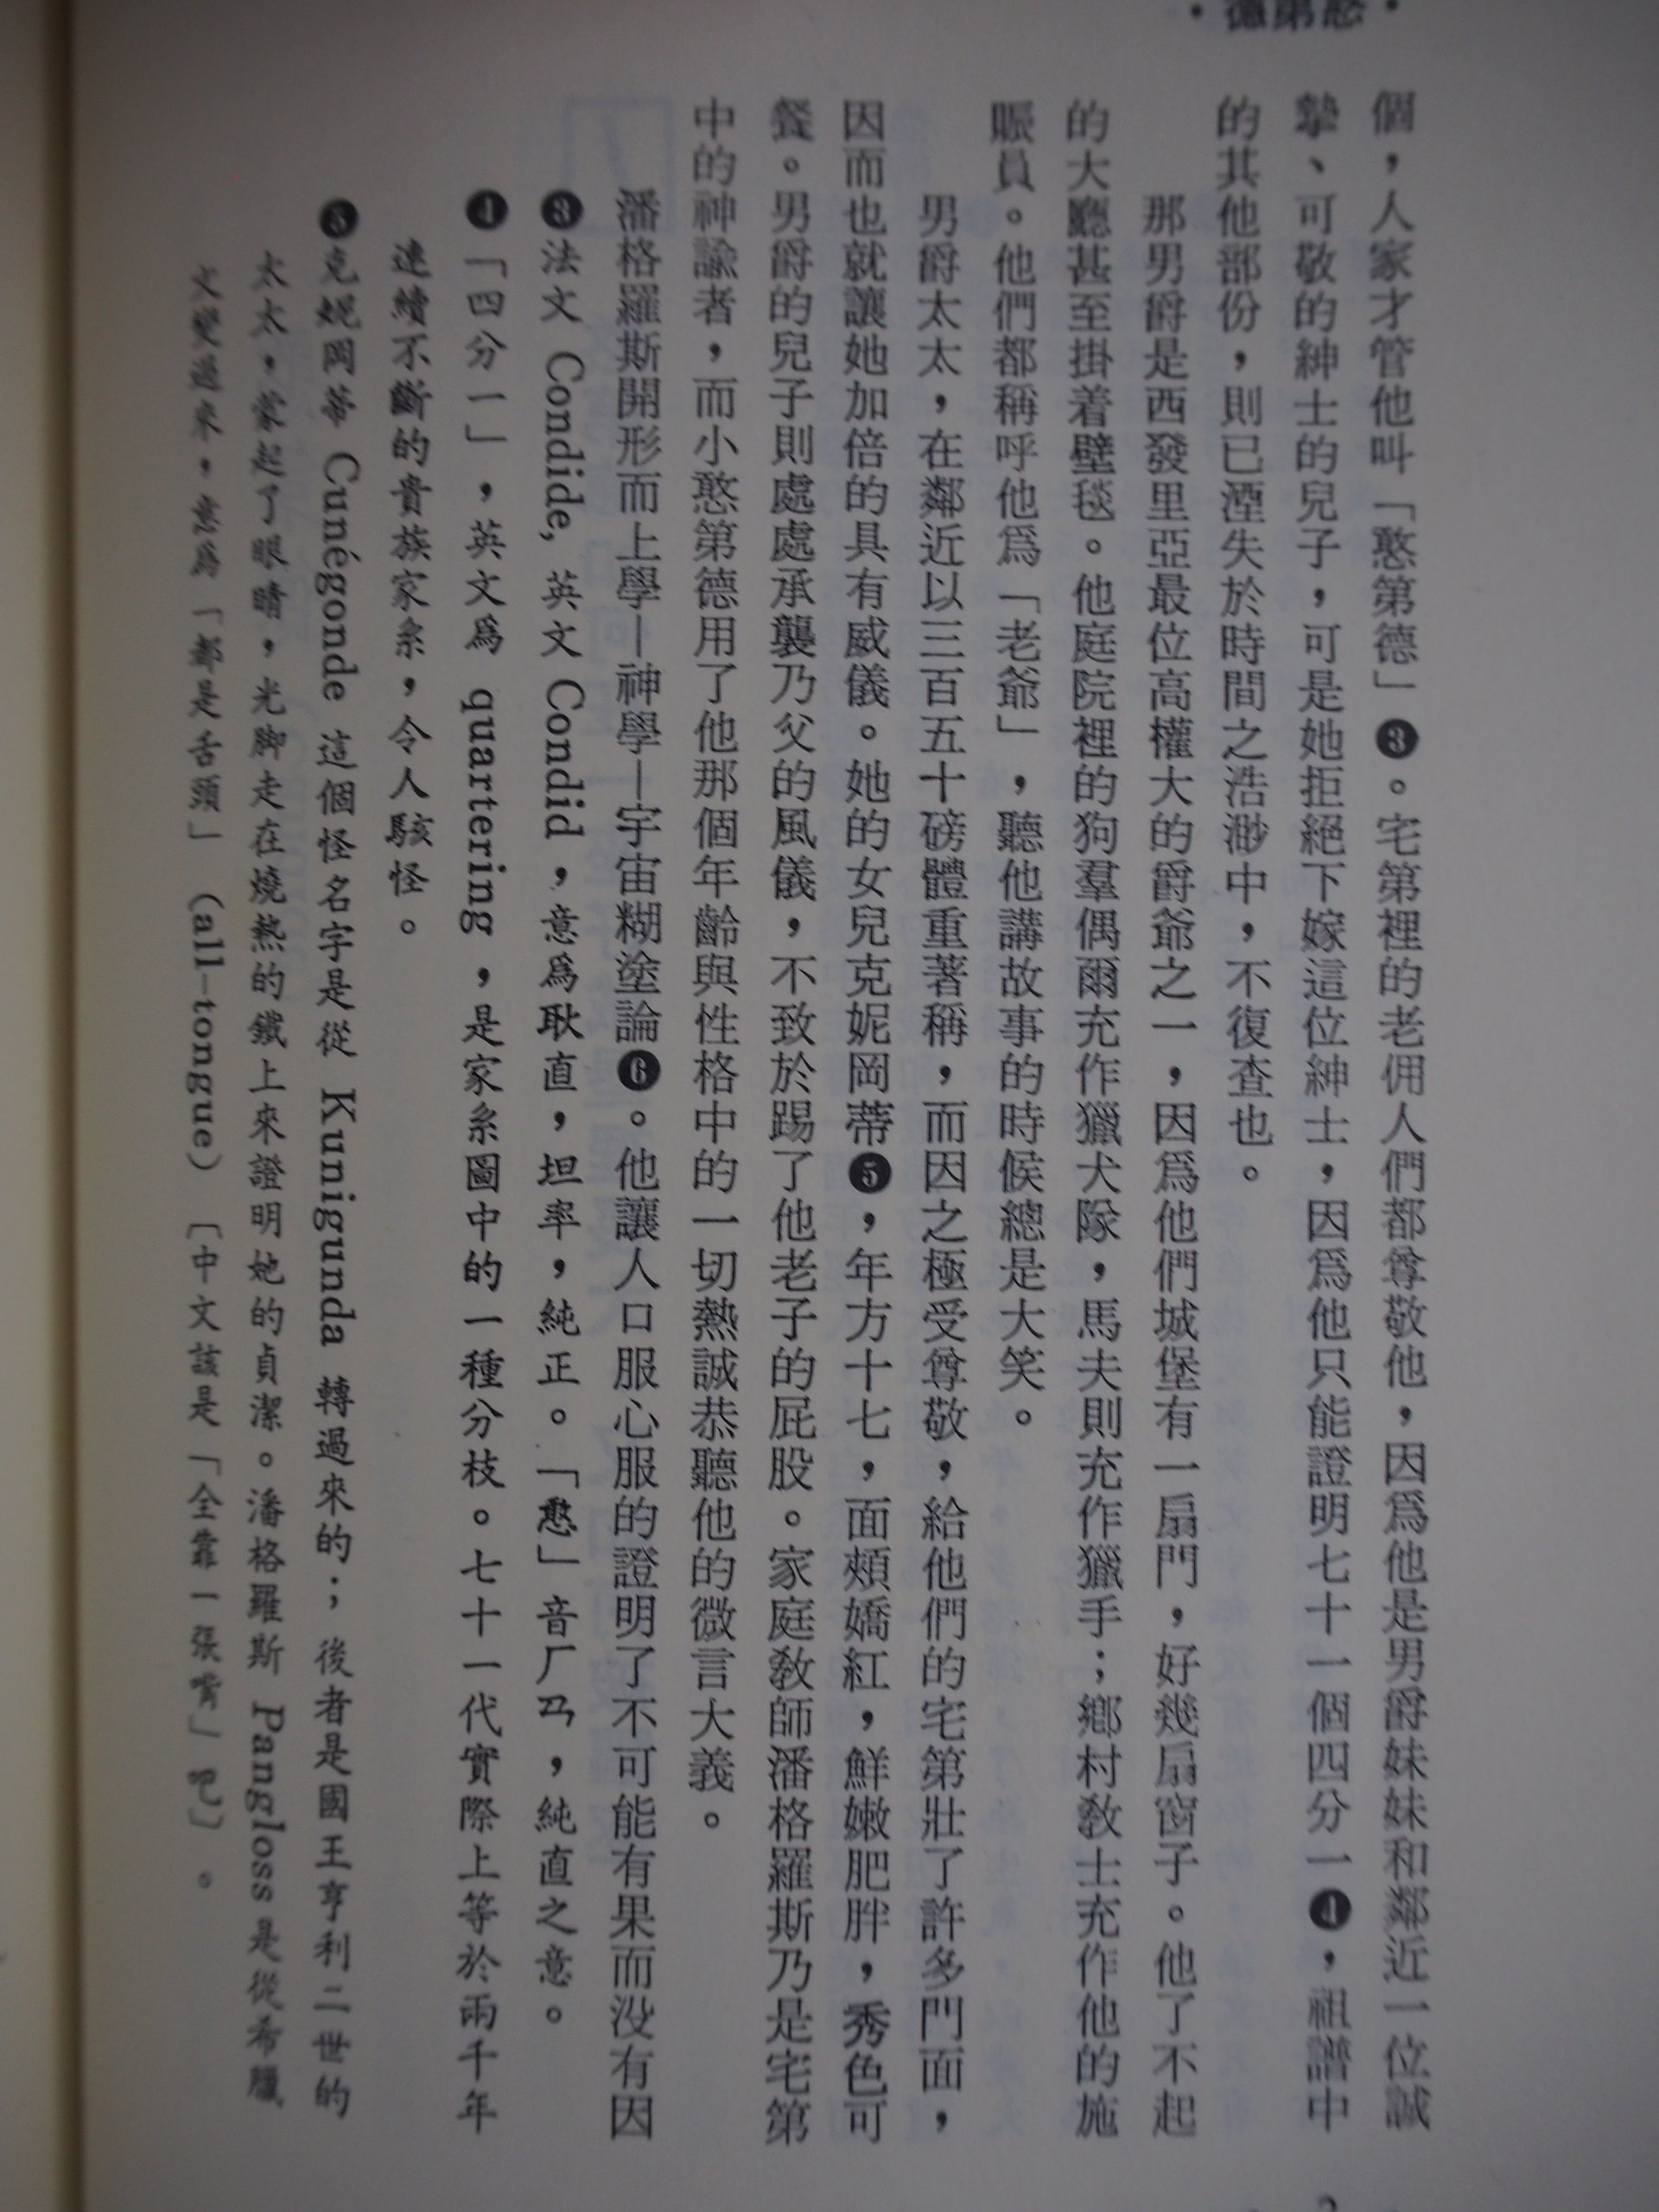 •憨第德•
個，人家才管他叫「憨第德」❸。宅第裡的老佣人們都尊敬他，因爲他是男爵妹妹和鄰近一位誠
摯、可敬的紳士的兒子，可是她拒絕下嫁這位紳士，因爲他只能證明七十一個四分一❹，祖譜中
的其他部份，則已湮失於時間之浩渺中，不復查也。
那男爵是西發里亞最位高權大的爵爺之一，因爲他們城堡有一扇門，好幾扇窗子。他了不起
的大廳甚至掛着壁毯。他庭院裡的狗羣偶爾充作獵犬隊，馬夫則充作獵手；鄉村教士充作他的施
賑員。他們都稱呼他爲「老爺」，聽他講故事的時候總是大笑。
男爵太太，在鄰近以三百五十磅體重著稱，而因之極受尊敬，給他們的宅第壯了許多門面，
因而也就讓她加倍的具有威儀。她的女兒克妮岡蒂❺，年方十七，面頰嬌紅，鮮嫩肥胖，秀色可
餐。男爵的兒子則處處承襲乃父的風儀，不致於踢了他老子的屁股。家庭教師潘格羅斯乃是宅第
中的神諭者，而小憨第德用了他那個年齡與性格中的一切熱誠恭聽他的微言大義。
潘格羅斯開形而上學—神學—宇宙糊塗論❻。他讓人口服心服的證明了不可能有果而没有因
❸法文 Condide, 英文 Condid，意爲耿直，坦率，純正。「憨」音ㄏㄢ，純直之意。
❹「四分一」，英文爲 quartering，是家系圖中的一種分枝。七十一代實際上等於兩千年
連續不斷的貴族家系，令人駭怪。
❺克妮岡蒂 Cunégonde 這個怪名字是從 Kunigunda 轉過來的；後者是國王亨利二世的
太太，蒙起了眼睛，光脚走在燒熱的鐵上來證明她的貞潔。潘格羅斯 Pangloss是從希臘
文變過來，意爲「都是舌頭」（all-tongue）〔中文該是「全靠一張嘴」吧〕。